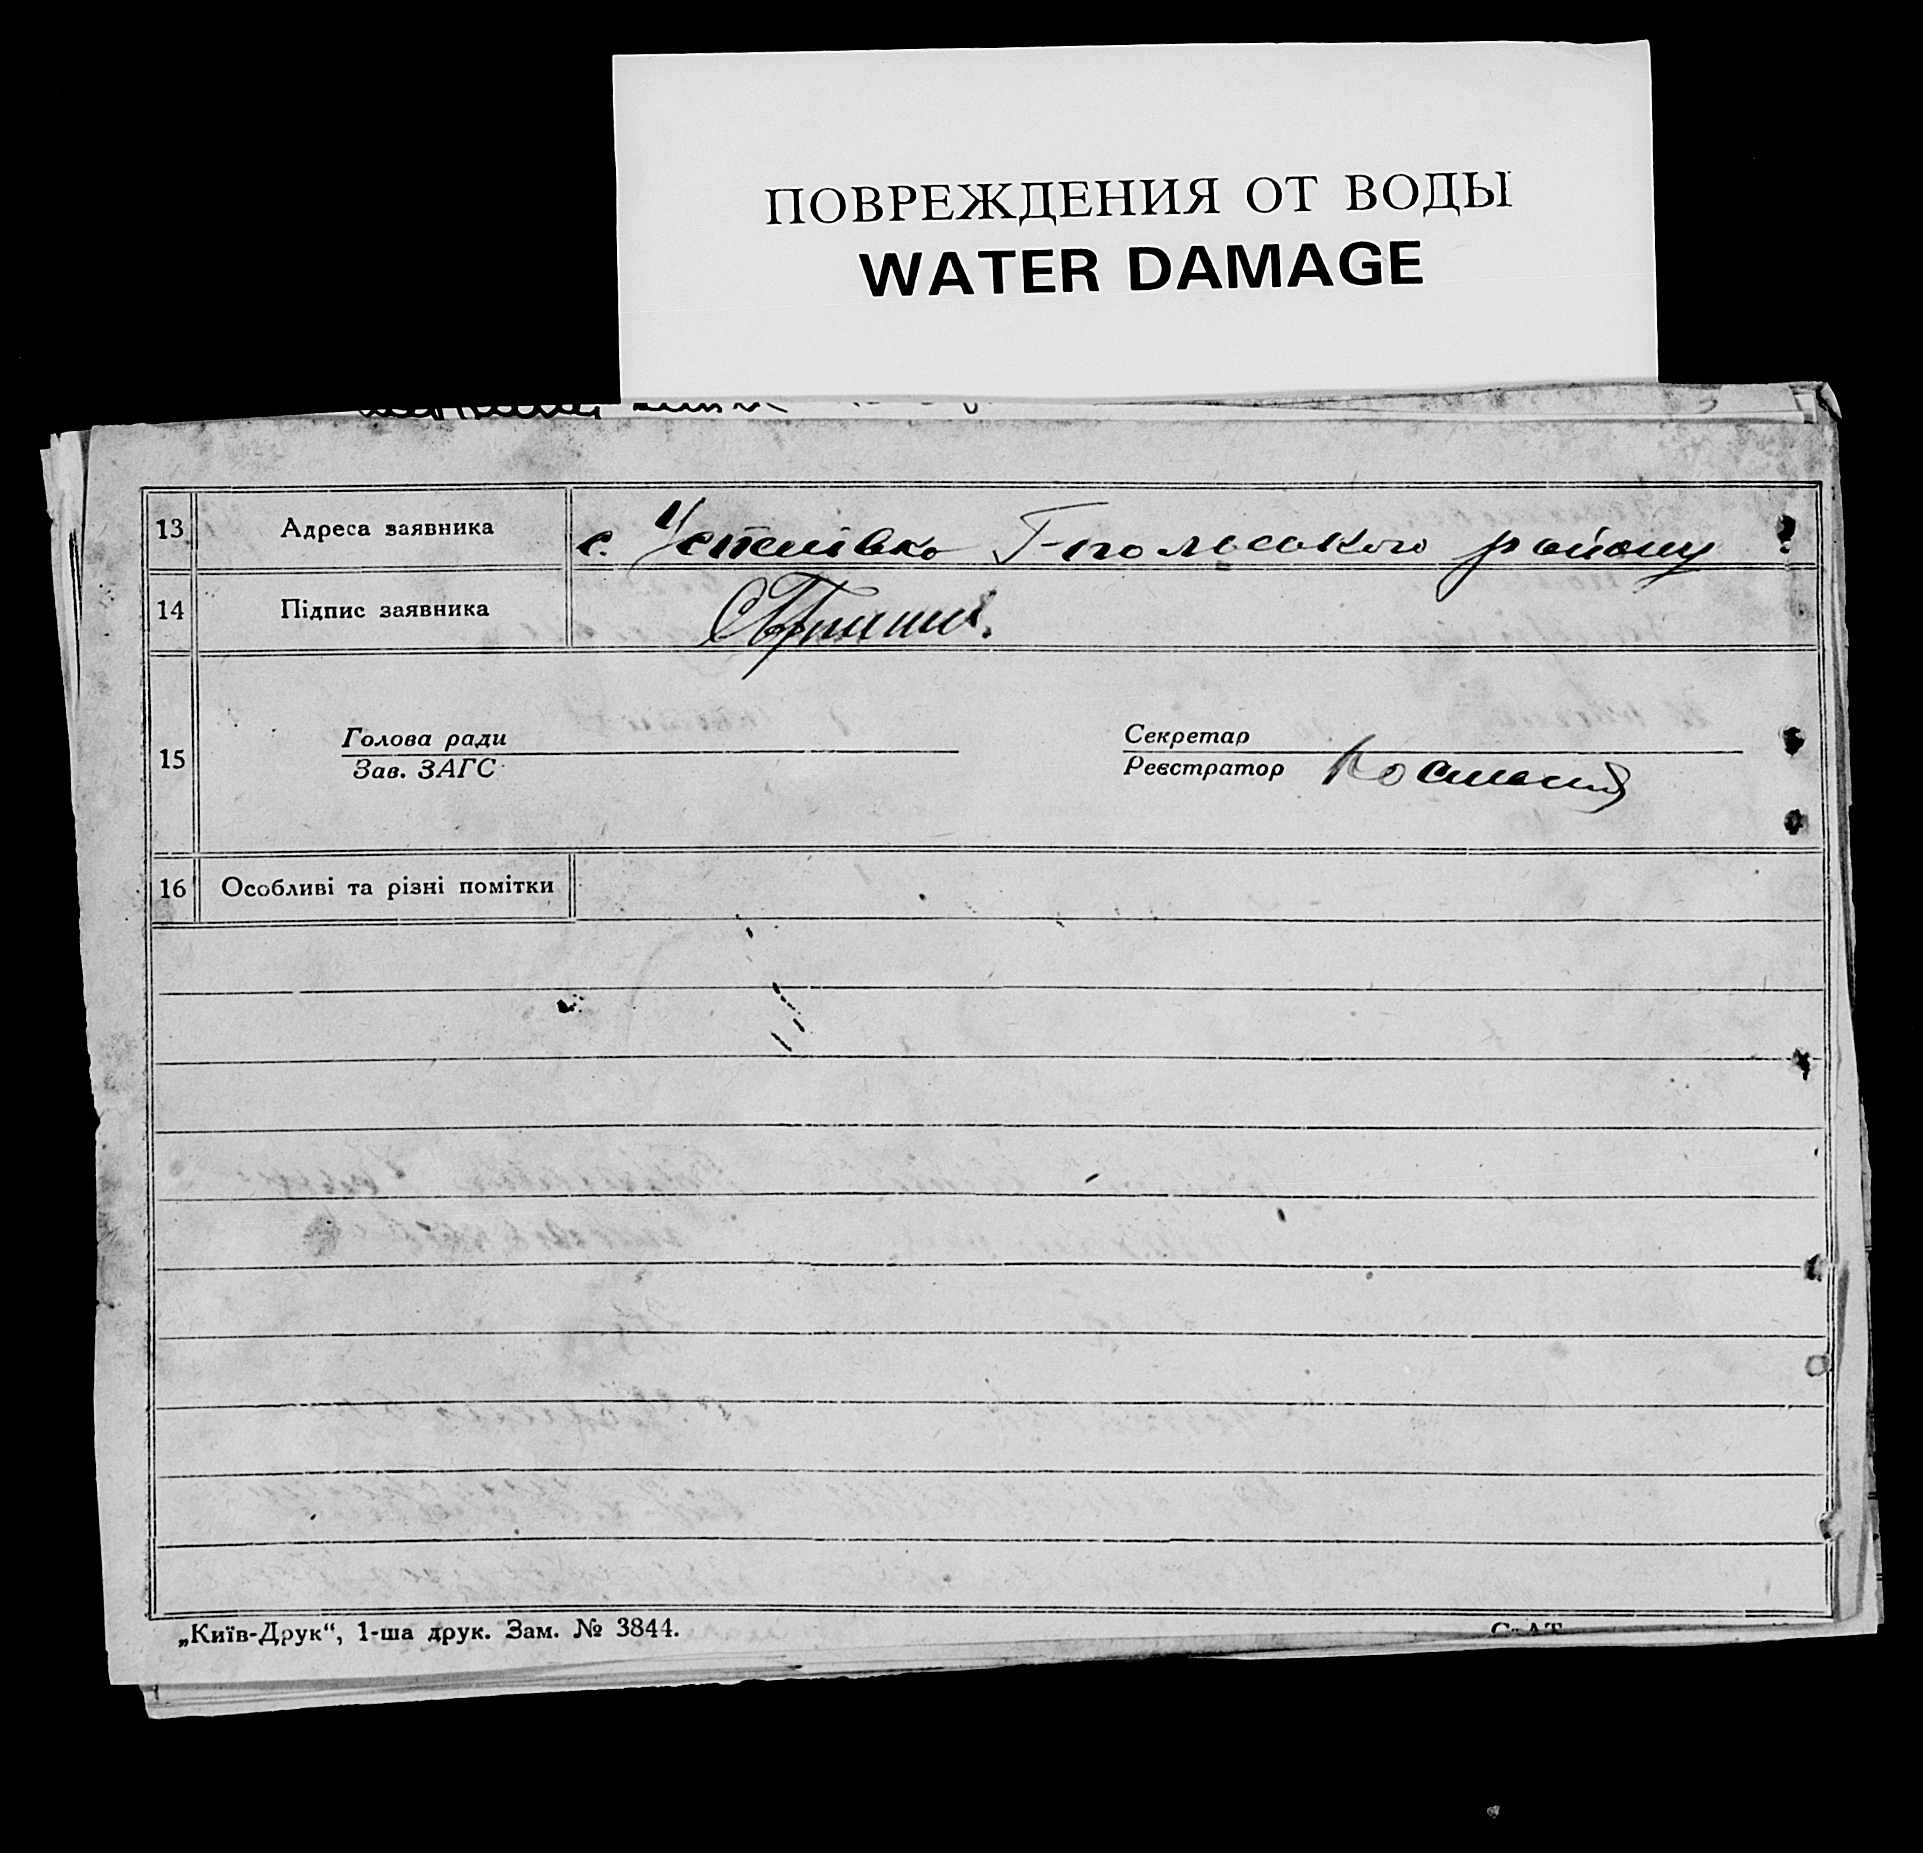 ПОВРЕЖДЕНИЯ ОТ ВОДЫ
WATER DAMAGE
13 Адреса заявника с. Устимівка Г-польського району
14 Підпис заявника
15 Голова ради
Зав. ЗАГС
Секретар
Реєстратор
16 Особливі та різні помітки
„Київ-Друк“, 1-ша друк. Зам. № 3844.